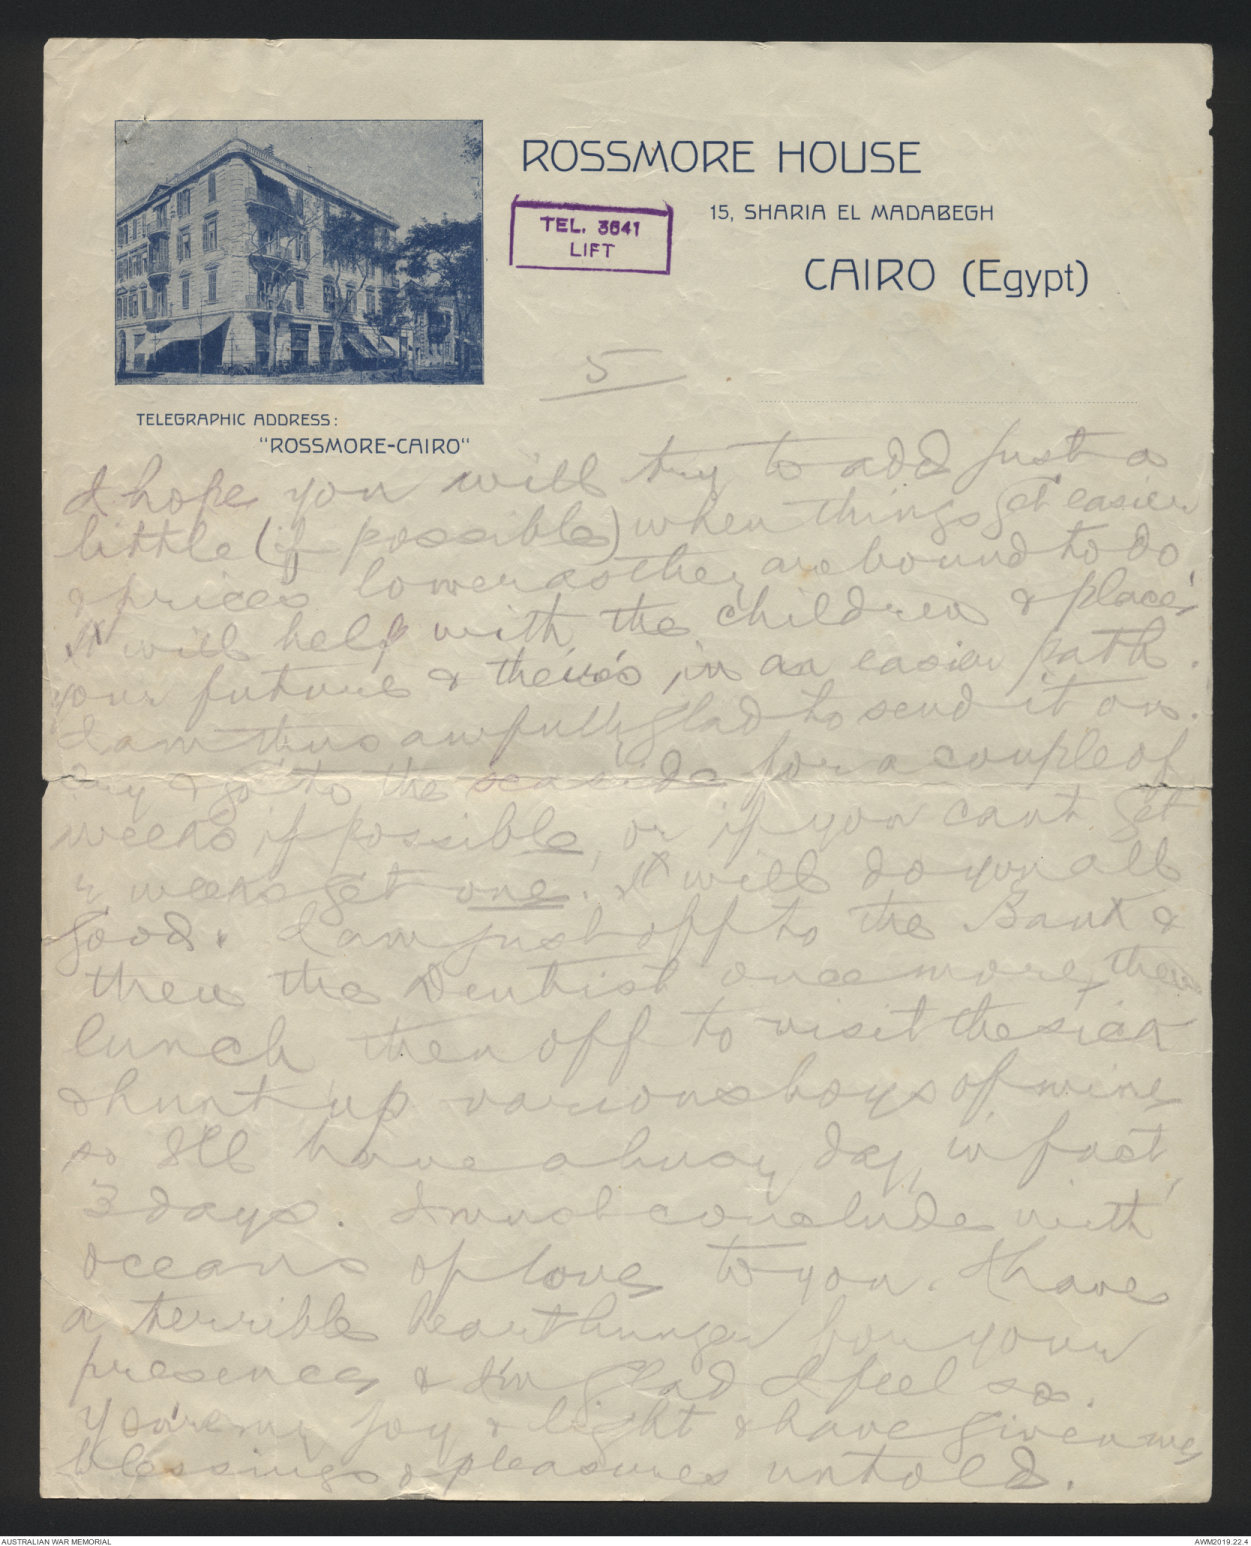 ROSSMORE HOUSE
15, SHARIA EL MADABEGH
CAIRO (Egypt)
TEL. 3641
LIFT
TELEGRAPHIC ADDRESS:
"ROSSMORE-CAIRO"
5
I hope you will try to add just a
little (if possible) when things get easier
& prices lower as they are bound to do.
It will help with the children & place
your future & theirs in an easier path.
I am thus awfully glad to send it on.
Try & go to the seaside for a couple of
weeks if possible, or if you cant get
2 weeks get one. It will do you all
good. I am just off to the Bank &
then the Dentist once more, then
lunch then off to visit the sick
& hunt up various boys of mine
so I'll have a busy day, in fact,
3 days. I must conclude with
oceans of love to you. I have
a terrible heart hunger for your
presence & I'm glad I feel so.
You're my joy & light & have given me
blessings & pleasures untold.
AUSTRALIAN WAR MEMORIAL
AWM2019.22.4